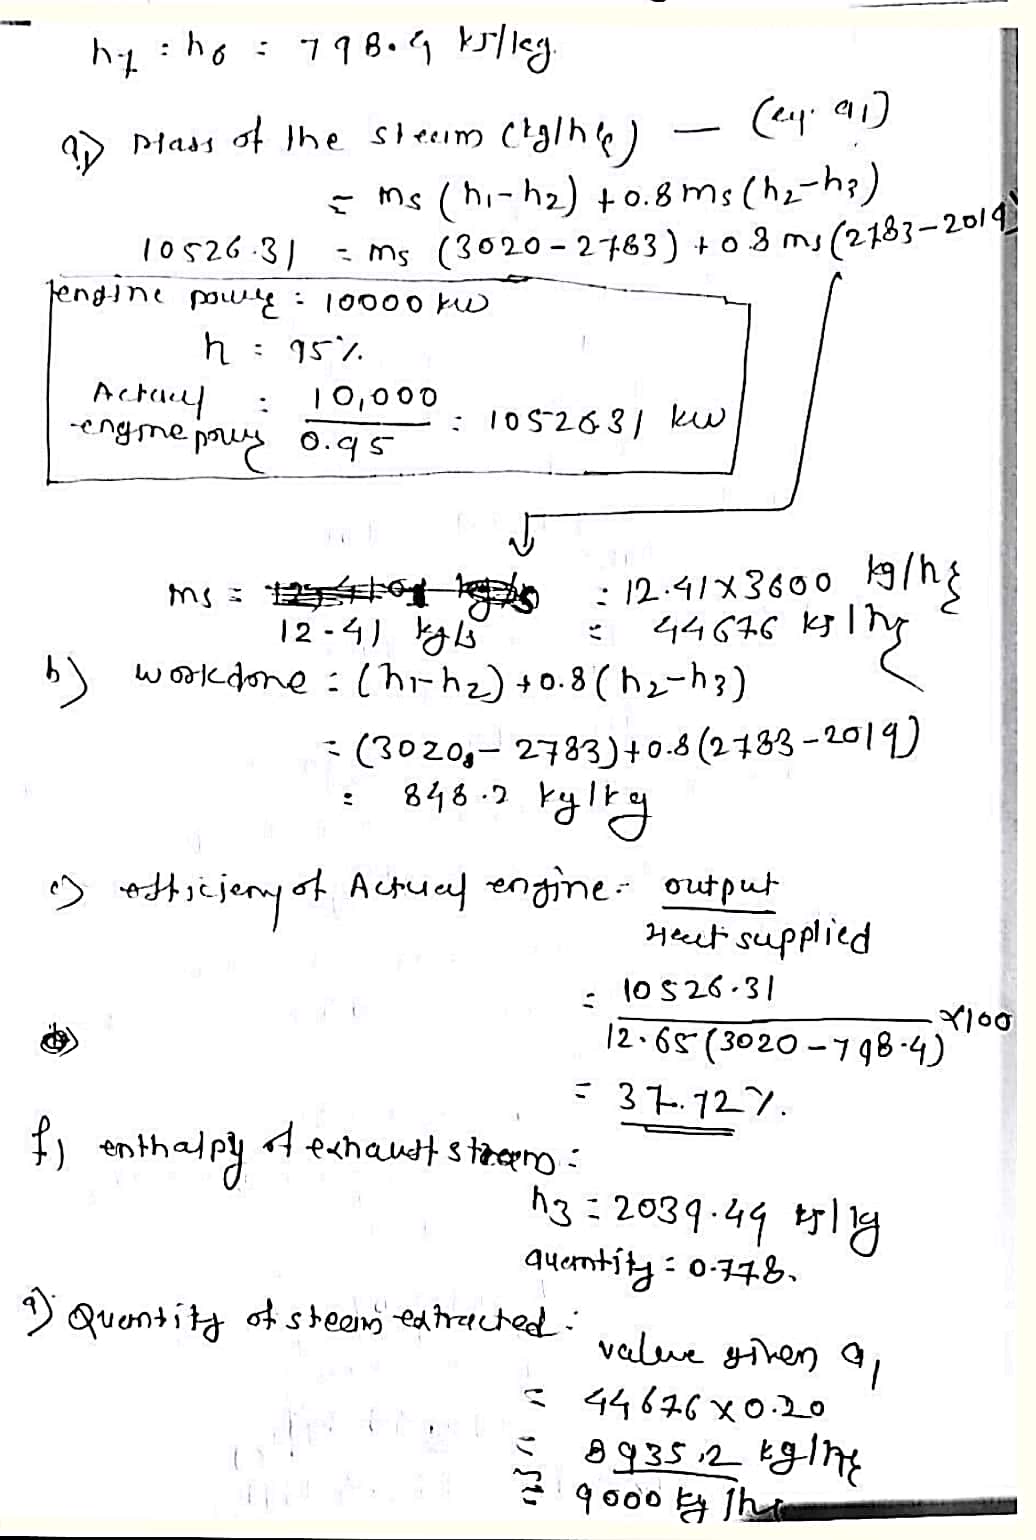 h7 = h6 = 798.4 kJ/kg.
a) Mass of the steam (kg/hr) — (eq. a1)
= ms (h1-h2) + 0.8 ms (h2-h3)
10526.31 = ms (3020-2783) + 0.8 ms (2783-2019)
engine power = 10000 kw
h = 95%
Actual engine power = 10,000 / 0.95 = 10526.31 kw
ms = 12.41 kg/s = 12.41 x 3600 kg/hr
= 44676 kg/hr
b) workdone = (h1-h2) + 0.8 (h2-h3)
= (3020 - 2783) + 0.8 (2783-2019)
= 848.2 kg/kg
c) efficiency of Actual engine = output / Heat supplied
= 10526.31 / 12.65 (3020-798.4) x100
= 37.72%.
f) enthalpy of exhaust steam =
h3 = 2039.49 kJ/kg
quantity = 0.778.
g) Quantity of steam extracted =
value given a1
= 44676 x 0.20
= 8935.2 kg/hr
= 9000 kg/hr